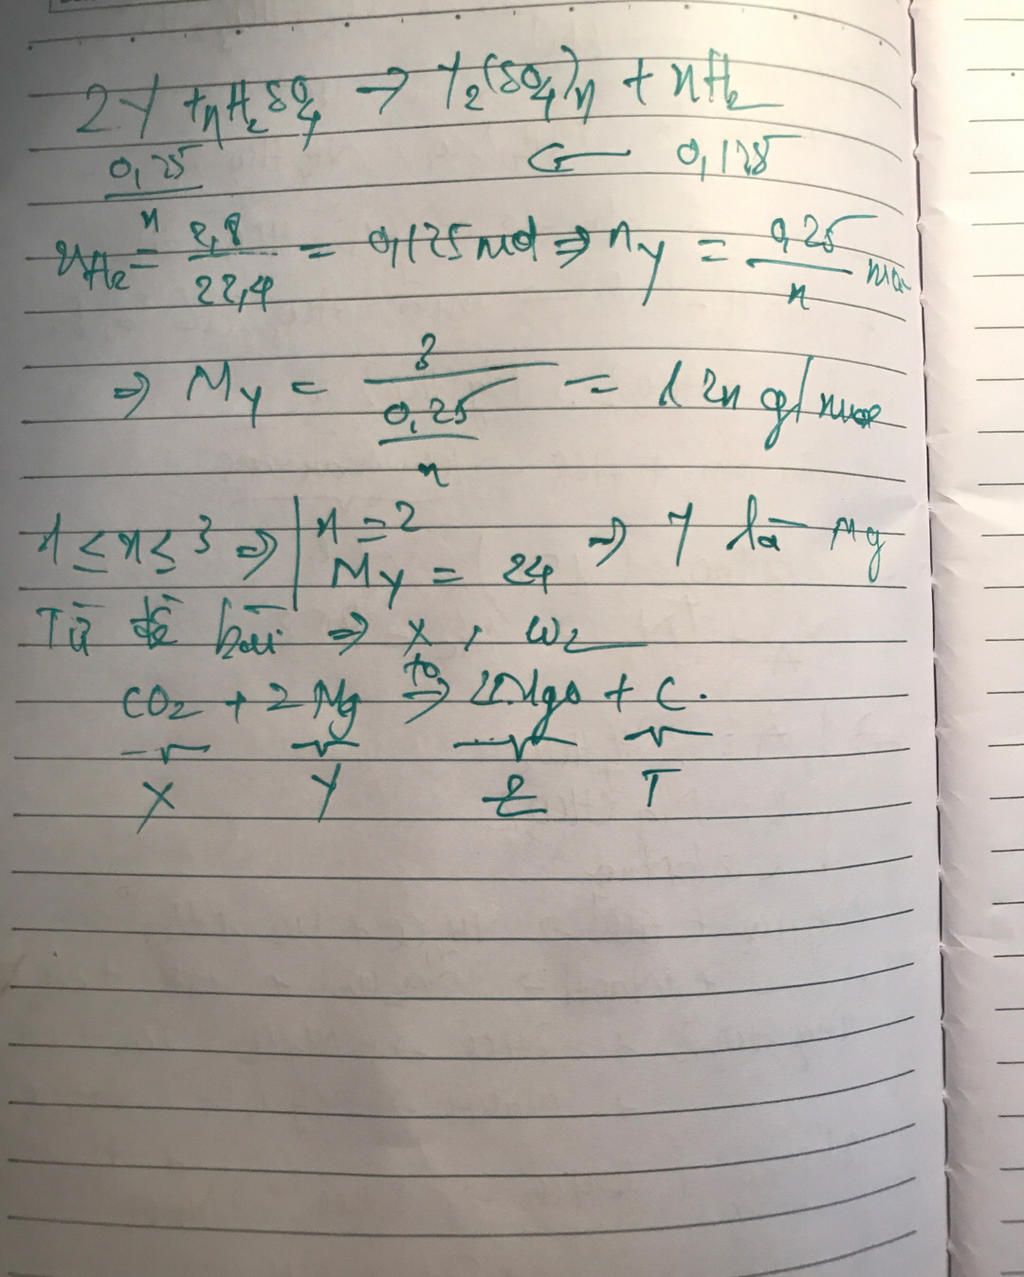 2Y + nH₂SO₄ → Y₂(SO₄)n + nH₂
0,25/n ← 0,125
nH₂ = 2,8/22,4 = 0,125 mol ⇒ nY = 0,25/n mol
⇒ MY = 3/(0,25/n) = 12n g/mol
1 ≤ n ≤ 3 ⇒ | n = 2
MY = 24 ⇒ Y là Mg
Từ đề bài ⇒ X, CO₂
CO₂ + 2Mg →(t°) 2MgO + C.
X Y Z T